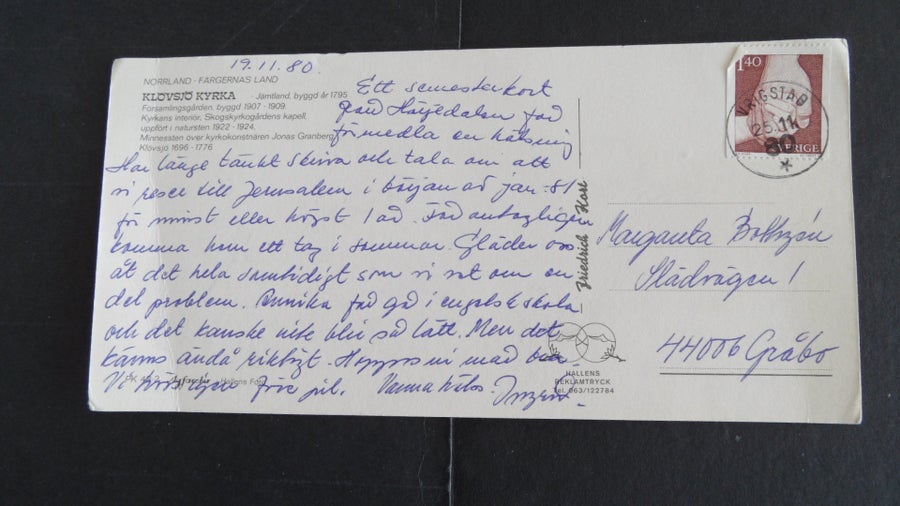 19.11.80.
NORRLAND - FÄRGERNAS LAND
KLÖVSJÖ KYRKA Jämtland. byggd år 1795
Församlingsgården. byggd 1907 - 1909.
Kyrkans interiör. Skogskyrkogårdens kapell,
uppfört i natursten 1922 - 1924.
Minnessten över kyrkokonstnären Jonas Granberg
Klövsjö 1696 - 1776
Ett semesterkort
från Härjedalen får
förmedla en hälsning
Har länge tänkt skriva och tala om att
vi reser till Jerusalem i början av jan -81
för minst eller högst 1 år. Får antagligen
komma hem ett tag i sommar. Gläder oss
åt det hela samtidigt som vi vet om en
del problem. Annika får gå i engelsk skola
och det kanske inte blir så lätt. Men det
känns ändå riktigt. Hoppas ni mår bra
Vi önskar fin jul. Varma
Hallens Foto
Friedrich Kort
HALLENS
REKLAMTRYCK
Tel. 063/122784
1.40
SVERIGE
VRIGSTAD
25.11.
80
Margareta
Slädvägen 1
44006 Gråbo